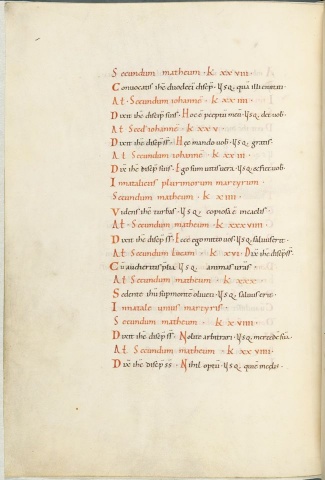 Secundum matheum · k xxviii ·
Conuocatis ihc duodeci discip · Usq; qua illi ciuitati
At · Secundum iohanne · k xxiiii ·
Dixit ihc discip suis · Hoc e peceptu meu · Usq; det uob ·
At Secd iohanne · k xxv ·
Dixit ihc discip ss · Hec mando uob · Usq; gratis ·
At Secundum iohanne · k xxiii ·
Dix ihc discip suis · Ego sum uitis uera · Usq; & fiet uob ·
In nataliciis plurimorum martyrum ·
Secundum matheum · k xiiii ·
Videns ihc turbas · Usq; copiosa e in caelis ·
At · Secundum matheum · k xxxviiii ·
Dixit ihc discip ss · Ecce ego mitto uos · Usq; saluus erit ·
At · Secundum lucam · k xxvi · Dix ihc discip ss ·
Cu audieritis plia · Usq; animas uras ·
At Secundum matheum · k xxx ·
Sedente ihu sup monte oliueti · Usq; saluus erit ·
In natale unius martyris ·
Secundum matheum · k xviiii ·
Dixit ihc discip ss · Nolite arbitrari · Usq; mercede sua ·
At Secundum matheum · k xxviiii ·
Dix ihc discip ss · Nihil optu · Usq;